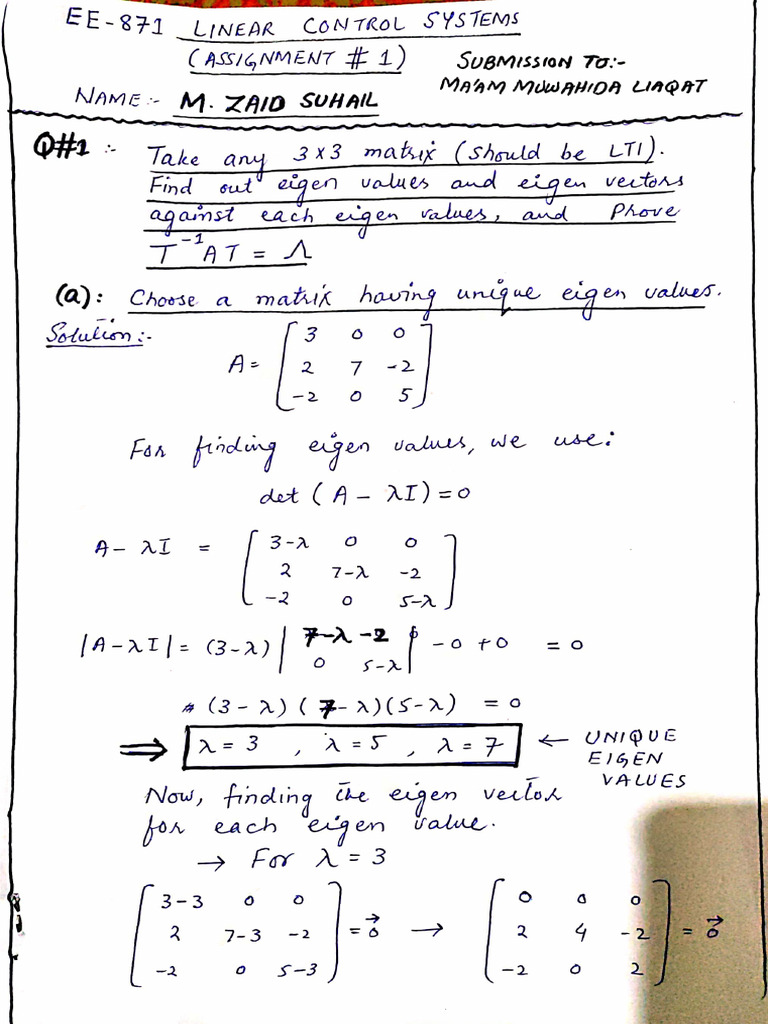 EE-871 LINEAR CONTROL SYSTEMS
(ASSIGNMENT # 1)
SUBMISSION TO:-
MA'AM MUWAHIDA LIAQAT
NAME:- M. ZAID SUHAIL
Q#1 :- Take any 3x3 matrix (should be LTI).
Find out eigen values and eigen vectors
against each eigen values, and Prove
T⁻¹AT = Λ
(a): Choose a matrix having unique eigen values.
Solution:-
A = [3 0 0
2 7 -2
-2 0 5]
For finding eigen values, we use:
det (A - λI) = 0
A - λI = [3-λ 0 0
2 7-λ -2
-2 0 5-λ]
|A-λI| = (3-λ) | 7-λ -2
0 5-λ | -0 +0 = 0
(3-λ)(7-λ)(5-λ) = 0
⇒ λ=3 , λ=5 , λ=7 ← UNIQUE
EIGEN
VALUES
Now, finding the eigen vector
for each eigen value.
→ For λ = 3
[3-3 0 0
2 7-3 -2
-2 0 5-3] = 0⃗ → [0 0 0
2 4 -2
-2 0 2] = 0⃗